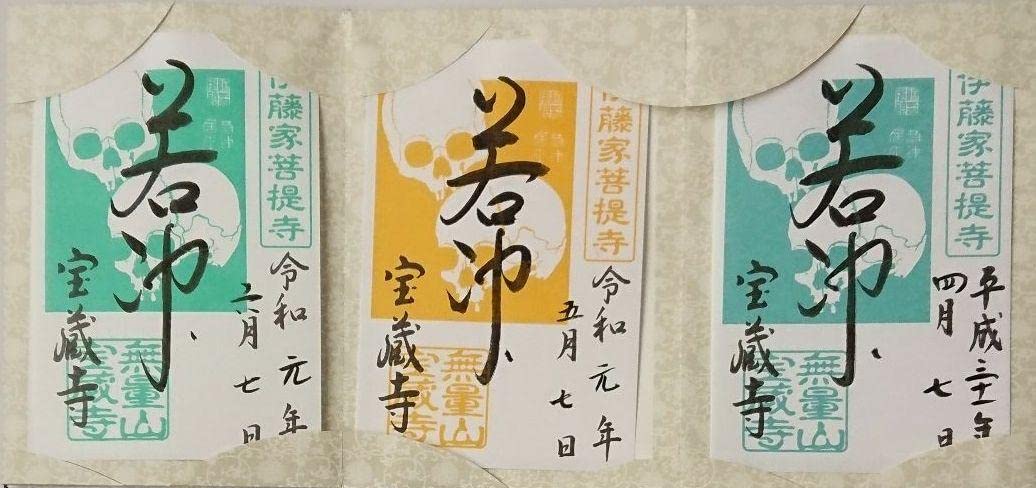 伊藤家菩提寺
平成三十一年
四月七日
若冲
宝蔵寺
無量山
宝蔵寺
伊藤家菩提寺
令和元年
五月七日
若冲
宝蔵寺
無量山
宝蔵寺
伊藤家菩提寺
令和元年
六月七日
若冲
宝蔵寺
無量山
宝蔵寺